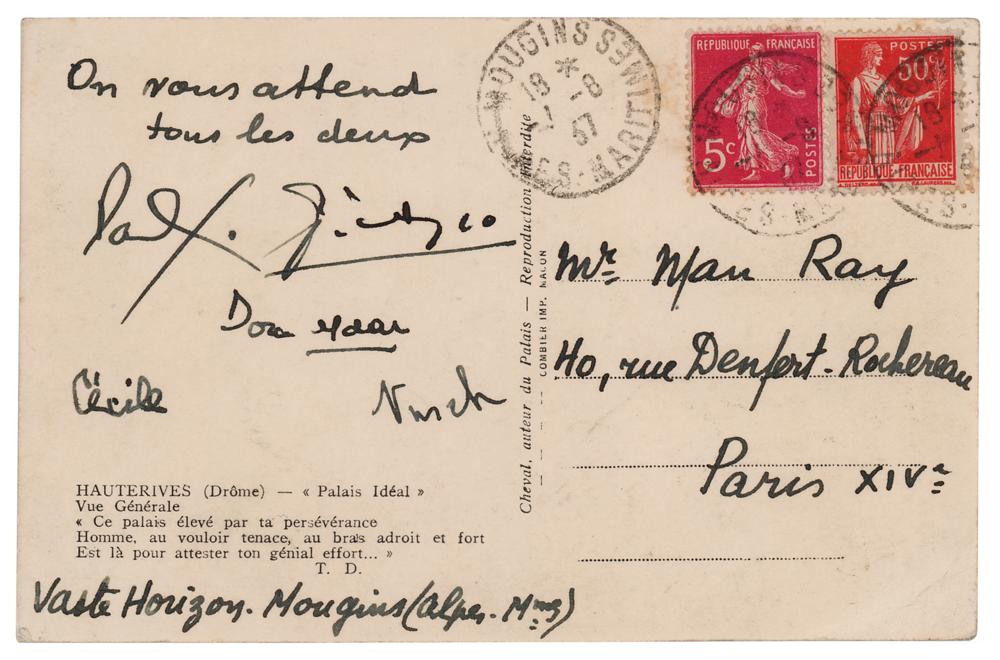 On vous attend
tous les deux
Paul. Picasso
Dora Maar
Cécile
Nusch
HAUTERIVES (Drôme) — « Palais Idéal »
Vue Générale
« Ce palais élevé par ta persévérance
Homme, au vouloir tenace, au bras adroit et fort
Est là pour attester ton génial effort... »
T. D.
Vaste Horizon. Mougins (Alpes-Mmes)
Cheval, auteur du Palais — Reproduction Interdite
COMBIER IMP. MACON
MOUGINS
18 * 8
37
ALPES-MARITIMES
REPUBLIQUE FRANÇAISE
5c
POSTES
POSTES
50c
REPUBLIQUE FRANÇAISE
Mr. Man Ray
40, rue Denfert-Rochereau
Paris XIVe